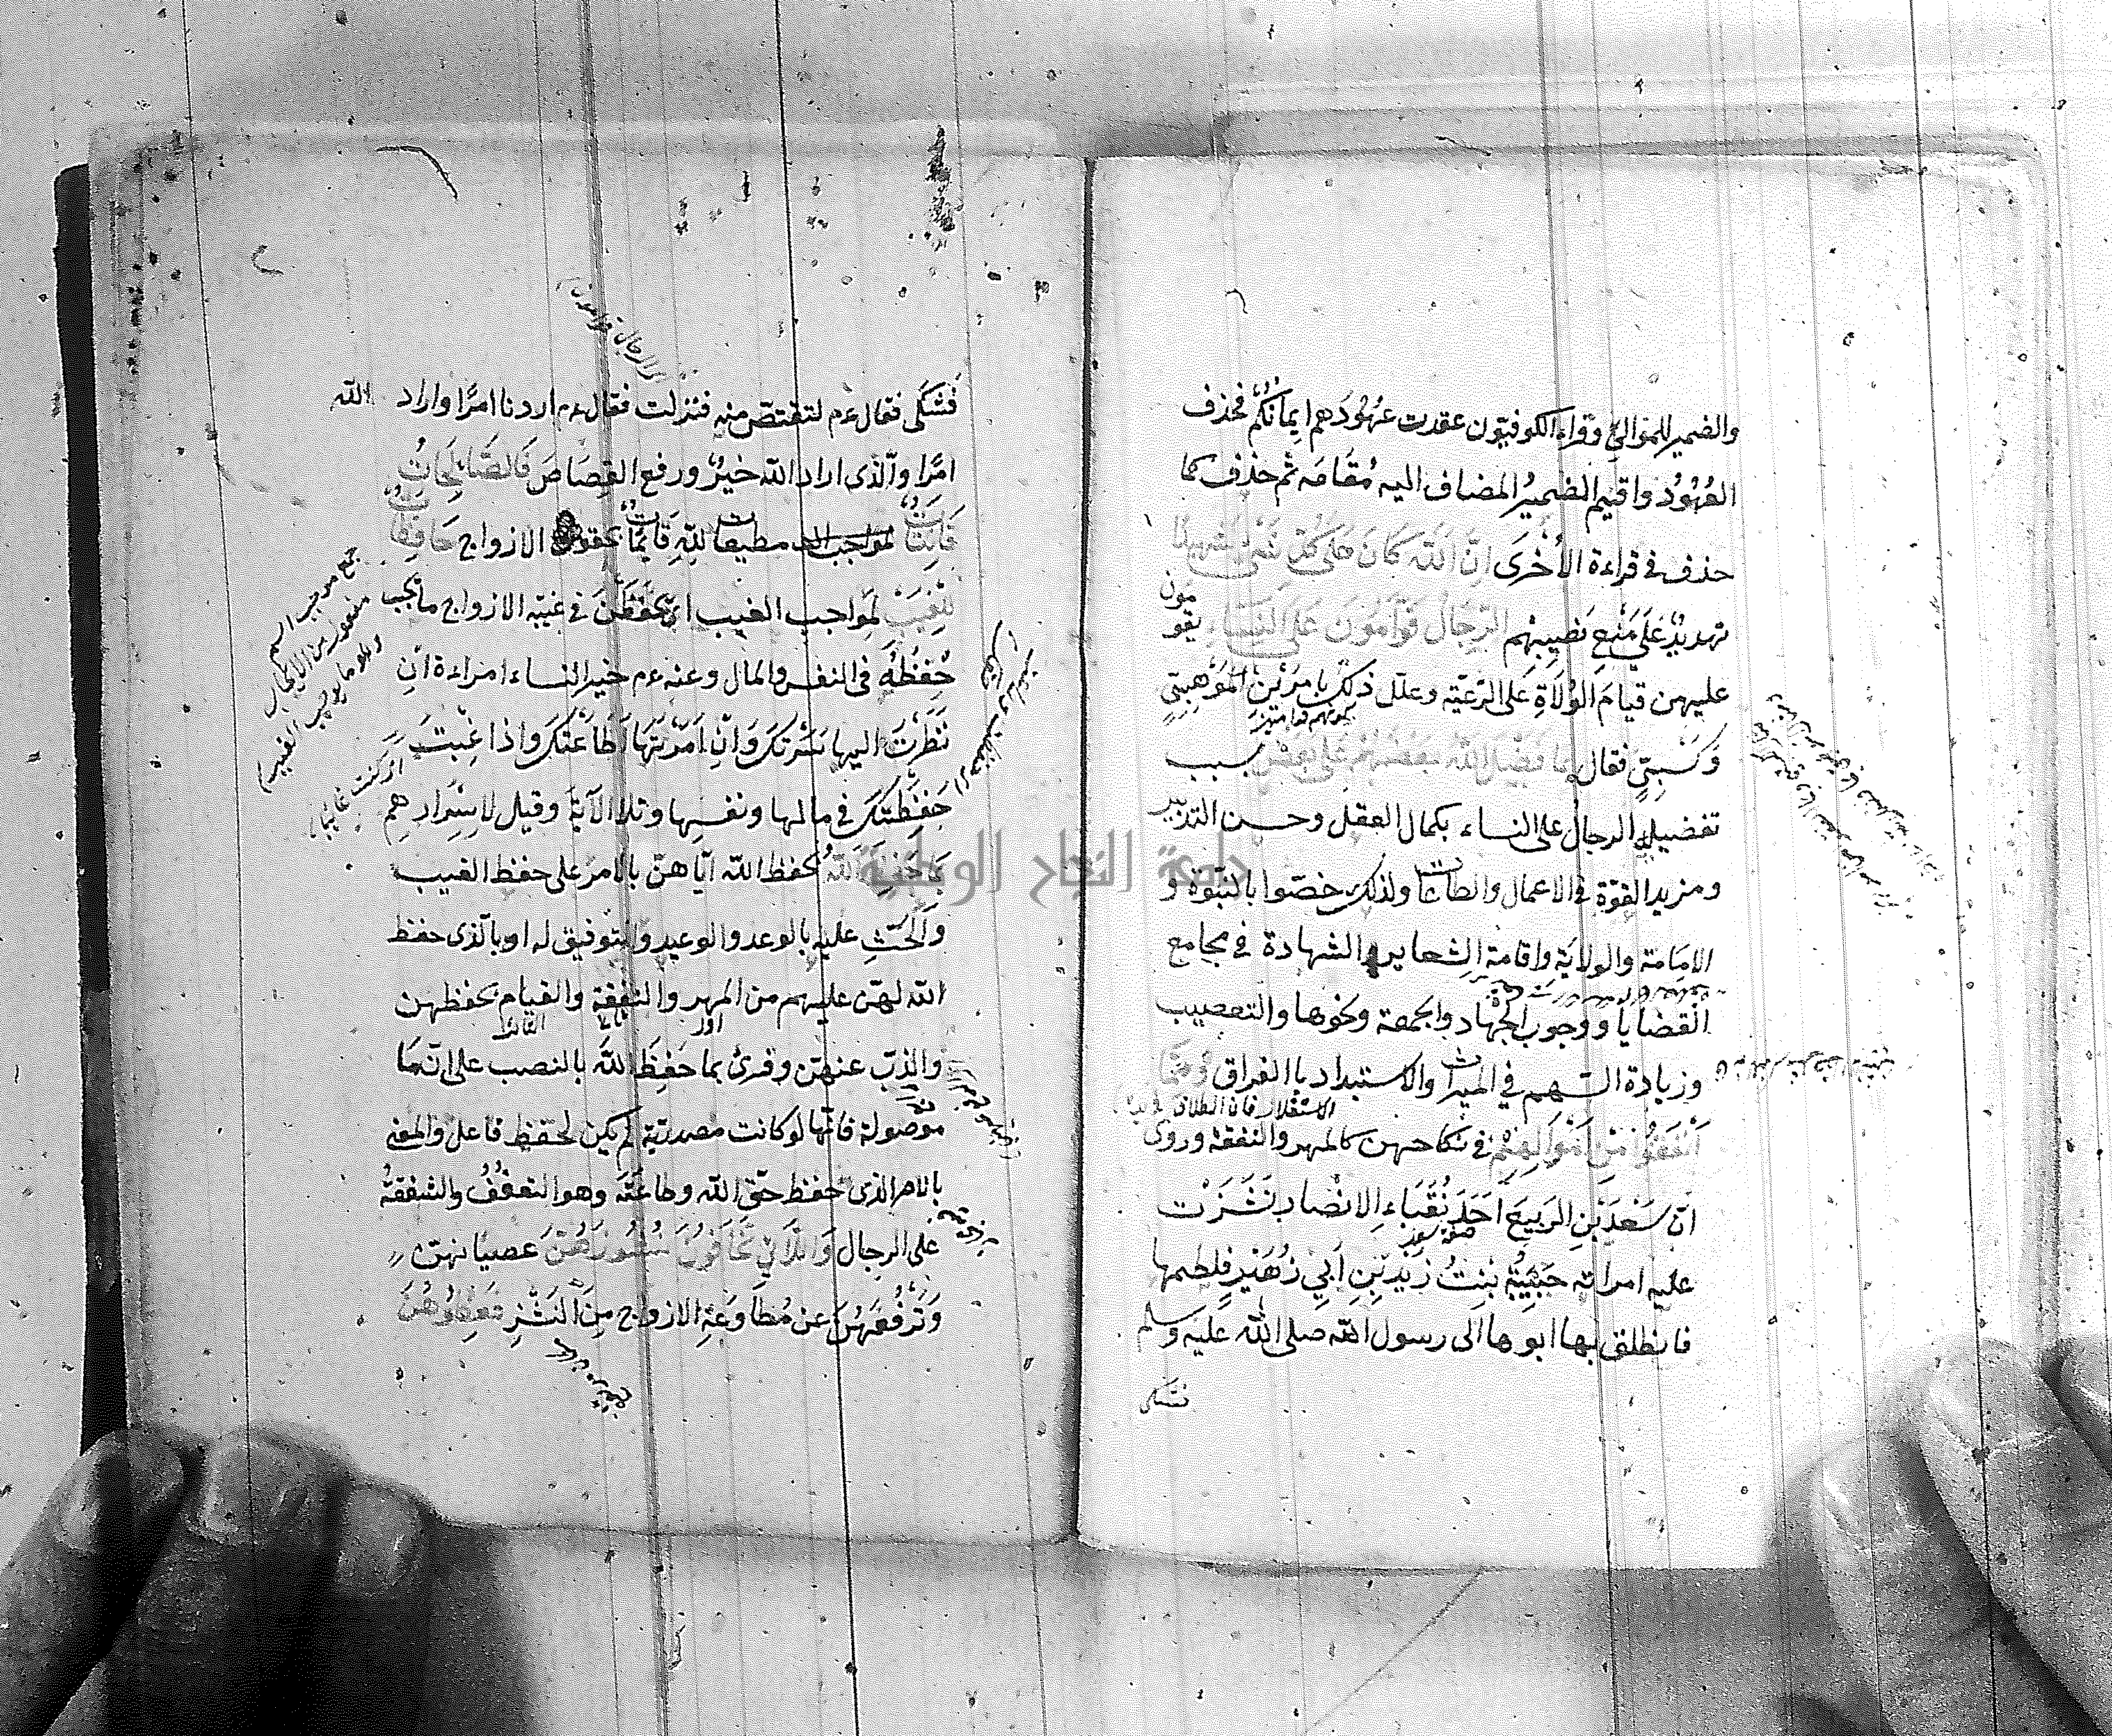 والضمير للموالي وقراء الكوفيون عقدت عهودهم ايمانكم فحذف
العهود واقيم الضمير المضاف اليه مقامه ثم حذف كما
حذف في قراءة الأخرى ان الله كان على كل شئ شهيدا
تهديد على منع نصيبهم الرجال قوامون على النساء يقومون
عليهن قيام الولاة على الرعية وعلل ذلك بامرين الموهبي
وكسبي فقال بما فضل الله بعضهم على بعض بسبب
تفضيله الرجال على النساء بكمال العقل وحسن التدبير
ومزيد القوة في الاعمال والطاعات ولذلك خصوا بالنبوة و
الامامة والولاية واقامة الشعاير والشهادة في مجامع
القضايا ووجوب الجهاد والجمعة ونحوها والتعصيب
وزيادة السهم في الميراث والاستبداد بالفراق وبما
انفقوا من اموالهم في نكاحهن كالمهر والنفقة وروى
ان سعد بن الربيع احد نقباء الانصار نشزت
عليه امراته حبيبة بنت زيد بن ابي زهير فلطمها
فانطلق بها ابوها الى رسول الله صلى الله عليه وسلم
فشكى
فشكى فقال ءم لتقتص منه فنزلت فقال ءم اردنا امرا واراد الله
امرا والذى اراد الله خير ورفع القصاص فالصالحات
قانتات مطيعات لله قايمات بحقوق الازواج حافظات
للغيب لمواجب الغيب اى يحفظن في غيبة الازواج ما يجب
حفظه في النفس والمال وعنه ءم خير النساء امراءة ان
نظرت اليها سرتك وان امرتها اطاعتك واذا غبت
حفظتك في مالها ونفسها وتلا الآية وقيل لاسرارهم
بما حفظ الله بحفظ الله اياهن بالامر على حفظ الغيب
والحث عليه بالوعد والوعيد والتوفيق له او بالذى حفظ
الله لهن عليهم من المهر والنفقة والقيام بحفظهن
والذب عنهن وقرئ بما حفظ الله بالنصب على ان ما
موصولة فانها لو كانت مصدرية لم يكن لحفظ فاعل والمعنى
بالامر الذى حفظ حق الله وطاعته وهو التعفف والشفقة
على الرجال واللاتي تخافون نشوزهن عصيانهن
وترفعهن عن مطاوعة الازواج من النشز فعظوهن
جمع موجب اسم
مفعول من الايجاب
الرجال قوامون
ان كنت غايبا
جامعة النجاح الوطنية